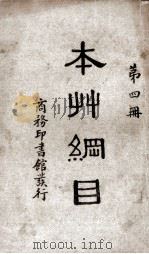 第四冊
本艸綱目
商務印書館發行
www.toopoo.com